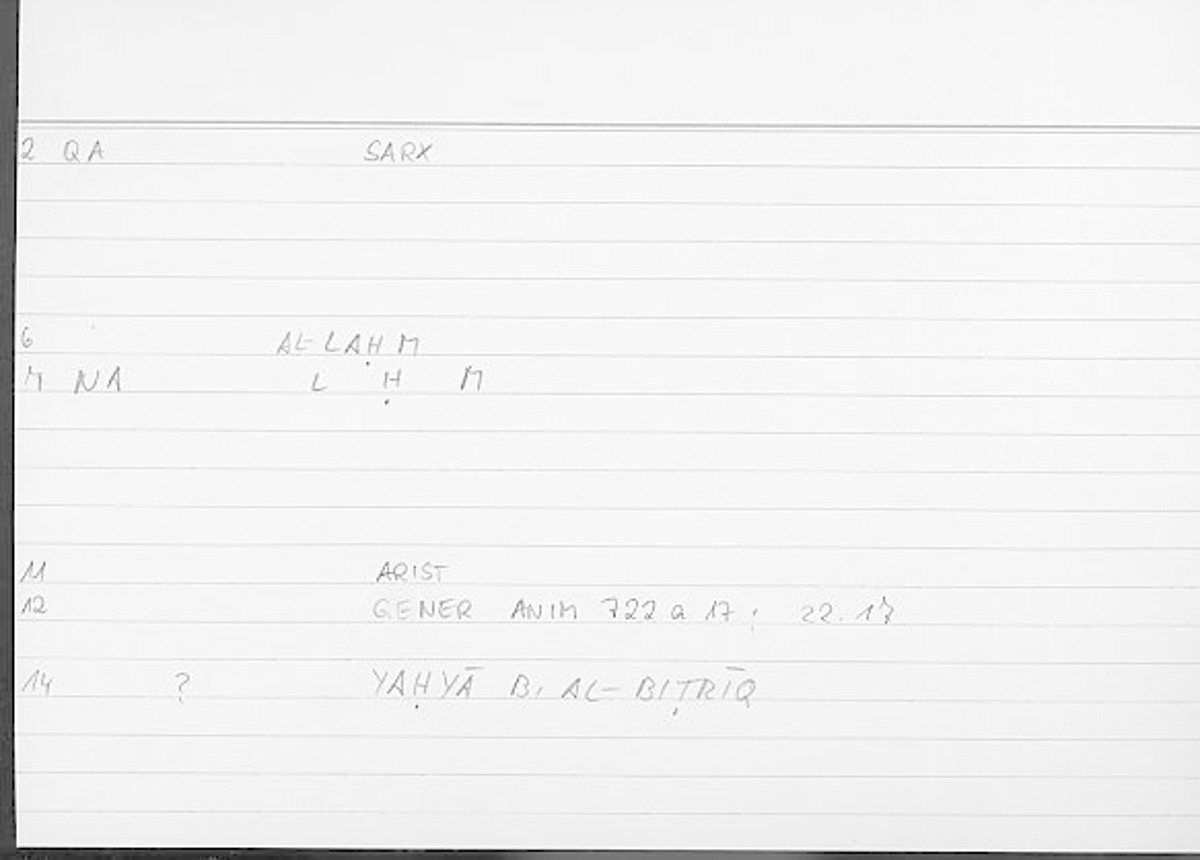 2 QA SARX
6 AL-LAḤM
7 NA L Ḥ M
11 ARIST
12 GENER ANIM 722 a 17 : 22.17
14 ? YAḤYĀ B. AL-BIṬRĪQ